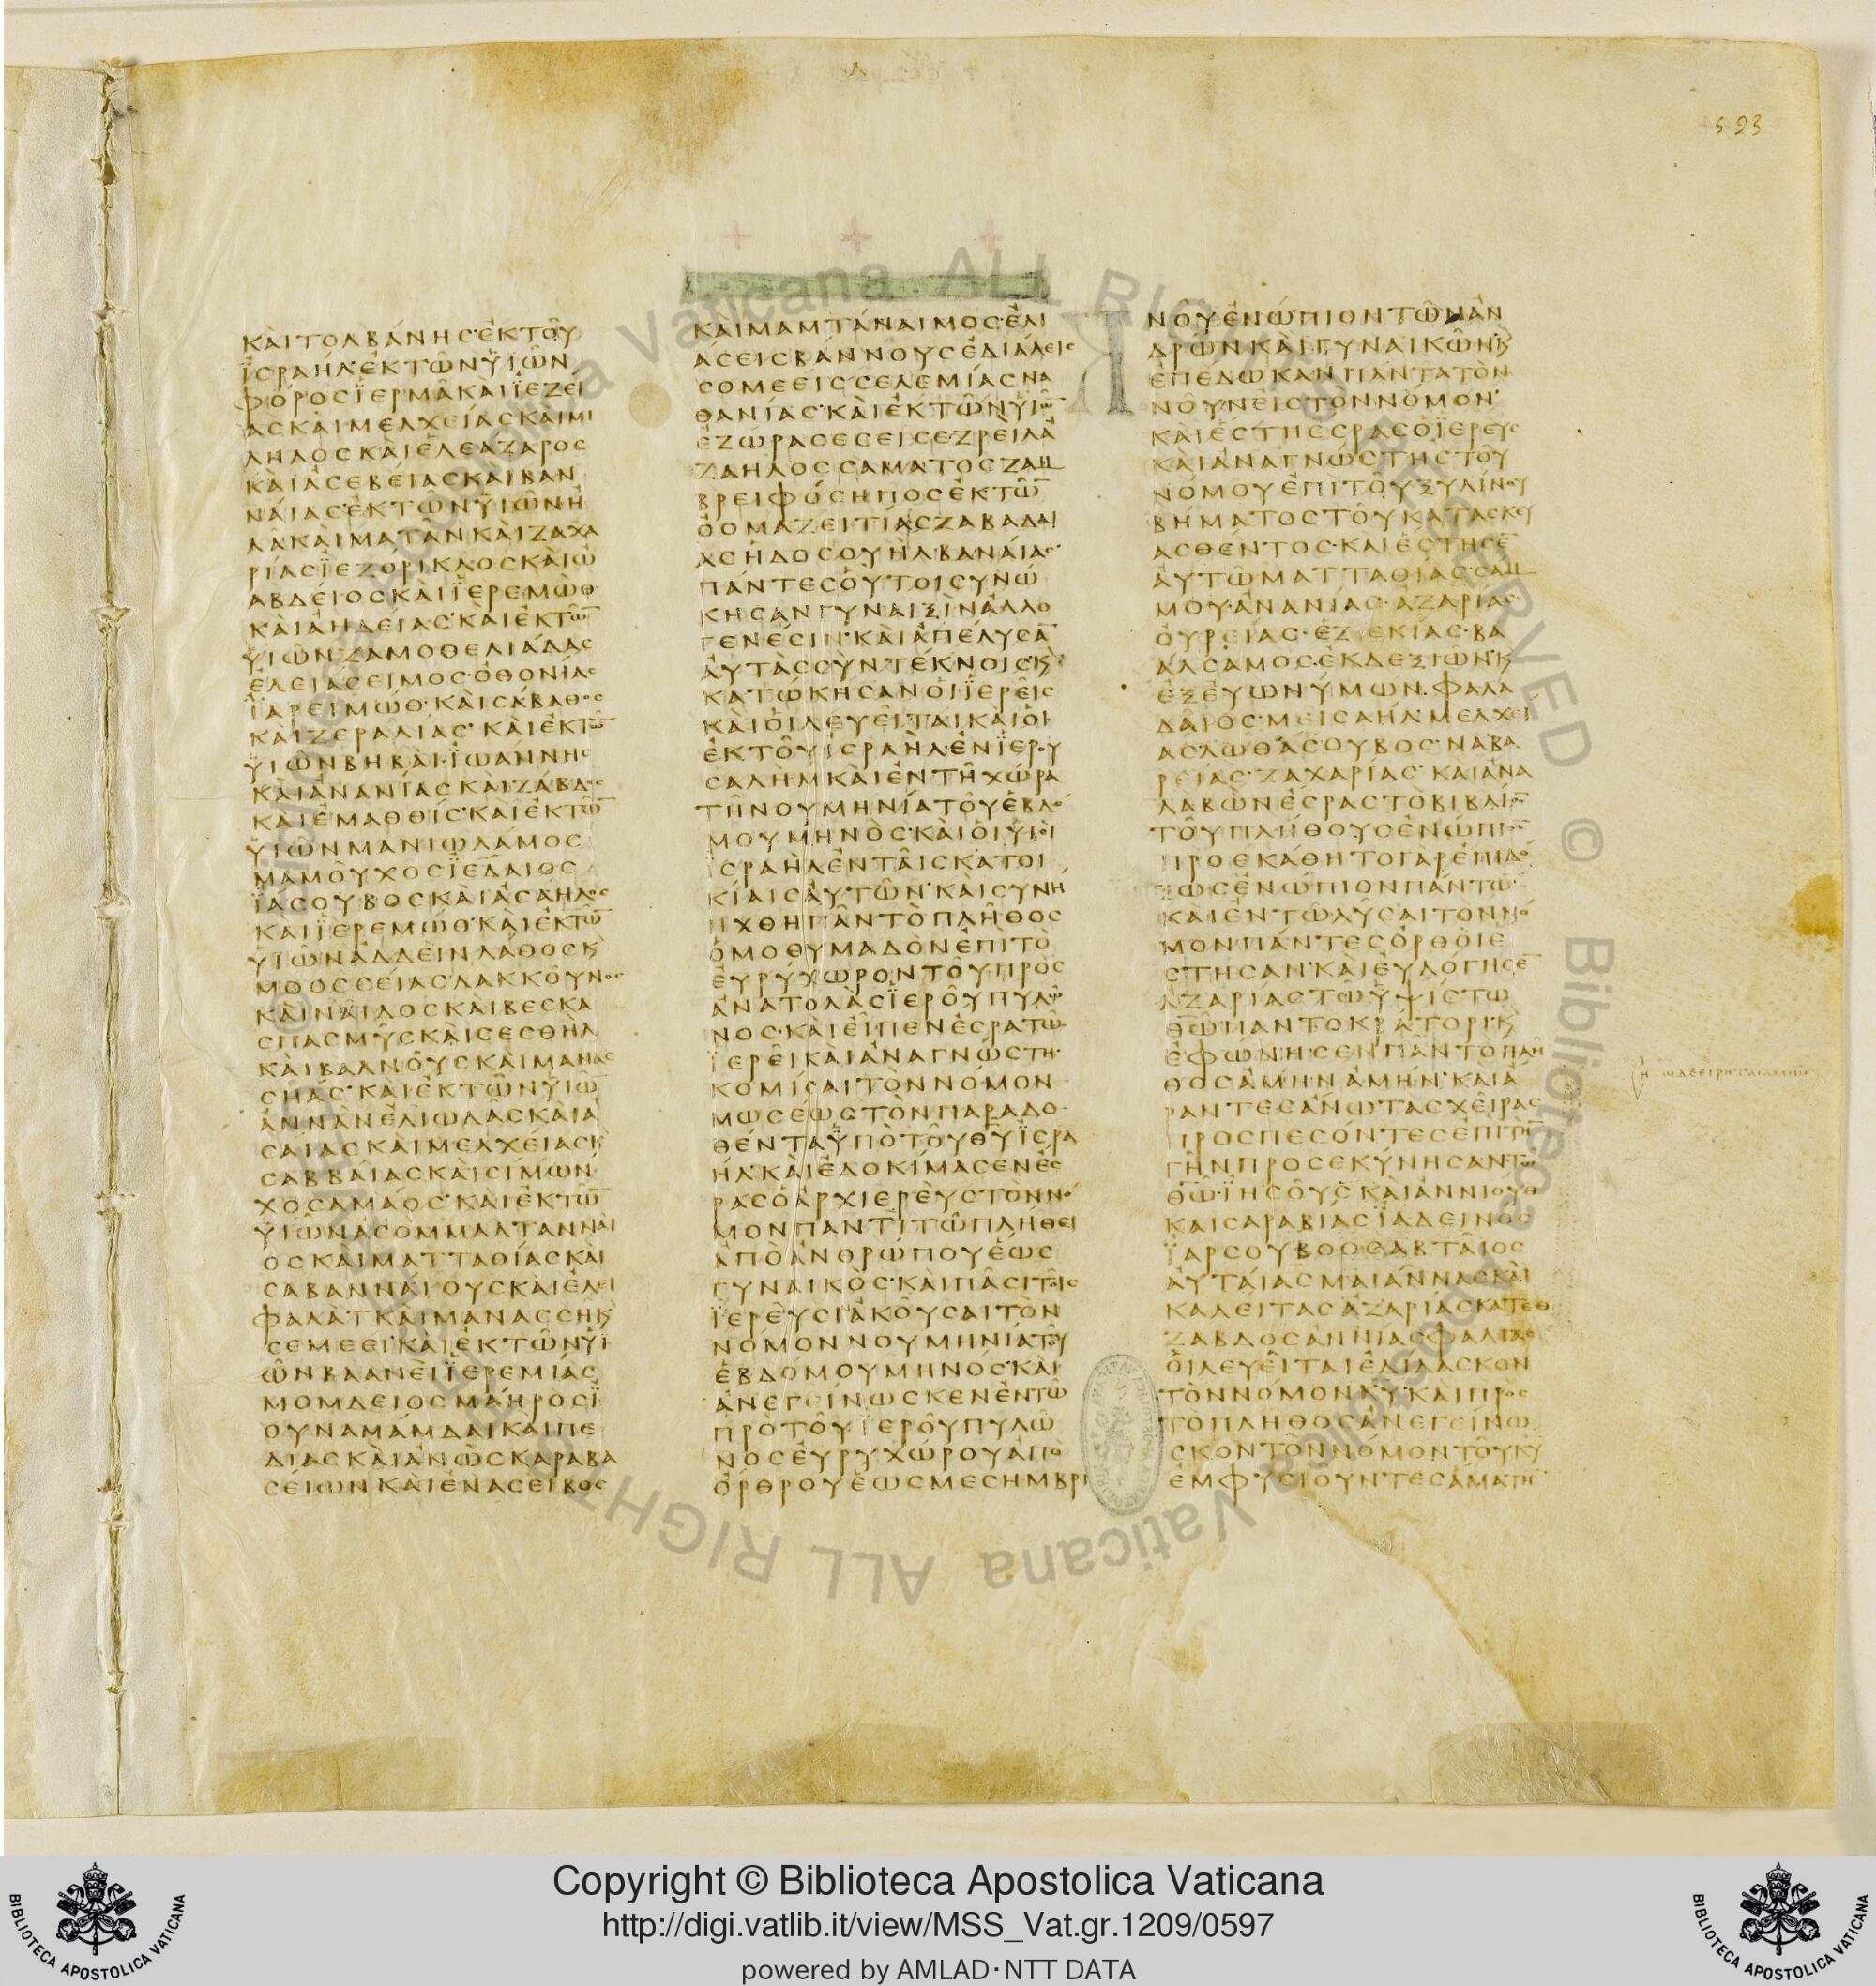 593
ΚΑΙΤΟΛΒΑΝΗΣ·ΕΚΤΟΥ
ΙΣΡΑΗΛ·ΕΚΤΩΝΥΙΩΝ
ΦΟΡΟΣΙΕΡΜΑΚΑΙΙΕΖΕΙ
ΑΣΚΑΙΜΕΛΧΕΙΑΣΚΑΙΜΙ
ΛΗΛΟΣΚΑΙΕΛΕΑΖΑΡΟΣ
ΚΑΙΑΣΕΒΕΙΑΣΚΑΙΒΑΝ
ΝΑΙΑΣ·ΕΚΤΩΝΥΙΩΝΗ
ΛΑΚΑΙΜΑΤΑΝΚΑΙΖΑΧΑ
ΡΙΑΣΙΕΖΟΡΙΚΛΟΣΚΑΙΩ
ΑΒΔΕΙΟΣΚΑΙΙΕΡΕΜΩΘ
ΚΑΙΑΗΔΕΙΑΣ·ΚΑΙΕΚΤΩ̅
ΥΙΩΝΖΑΜΟΘΕΛΙΑΔΑΣ
ΕΛΕΙΑΣΕΙΜΟΣ·ΟΘΟΝΙΑΣ
ΙΑΡΕΙΜΩΘ·ΚΑΙΣΑΒΑΘΟΣ
ΚΑΙΖΕΡΑΛΙΑΣ·ΚΑΙΕΚΤΩ̅
ΥΙΩΝΒΗΒΑΙ·ΙΩΑΝΝΗΣ
ΚΑΙΑΝΑΝΙΑΣΚΑΙΖΑΒΔΟΣ
ΚΑΙΕΜΑΘΘΙΣ·ΚΑΙΕΚΤΩ̅
ΥΙΩΝΜΑΝΙΩΛΑΜΟΣ
ΜΑΜΟΥΧΟΣΙΕΔΑΙΟΣ
ΙΑΣΟΥΒΟΣΚΑΙΑΣΑΗΛΟΣ
ΚΑΙΙΕΡΕΜΩΘ·ΚΑΙΕΚΤΩ̅
ΥΙΩΝΑΔΔΕΙΝΛΑΘΟΣΚ
ΜΘΟΣΣΕΙΑΣΛΑΚΚΟΥΝΟΣ
ΚΑΙΝΑΙΔΟΣΚΑΙΒΕΣΚΑ
ΣΠΑΣΜΥΣΚΑΙΣΕΣΘΗΛ
ΚΑΙΒΑΛΝΟΥΣΚΑΙΜΑΝΑΣ
ΣΗΑΣ·ΚΑΙΕΚΤΩΝΥΙΩ̅
ΑΝΝΑΝΕΛΙΩΔΑΣΚΑΙΑ
ΣΑΙΑΣΚΑΙΜΕΛΧΕΙΑΣΚ
ΣΑΒΒΑΙΑΣΚΑΙΣΙΜΩΝ
ΧΟΣΑΜΑΟΣ·ΚΑΙΕΚΤΩ̅
ΥΙΩΝΑΣΟΜΜΑΛΤΑΝΝΑΙ
ΟΣΚΑΙΜΑΤΤΑΘΙΑΣΚΑΙ
ΣΑΒΑΝΝΑΙΟΥΣΚΑΙΕΛΕΙ
ΦΑΛΑΤΚΑΙΜΑΝΑΣΣΗΚ
ΣΕΜΕΕΙ·ΚΑΙΕΚΤΩΝΥΙ
ΩΝΒΑΑΝΕΙΙΕΡΕΜΙΑΣ
ΜΟΜΔΕΙΟΣΜΑΗΡΟΣΙ
ΟΥΝΑΜΑΜΔΑΙΚΑΙΠΕ
ΔΙΑΣΚΑΙΑΝΩΣΚΑΡΑΒΑ
ΣΕΙΩΝΚΑΙΕΝΑΣΕΙΒΟΣ
ΚΑΙΜΑΜΤΑΝΑΙΜΟΣ·ΕΛΙ
ΑΣΕΙΣΒΑΝΝΟΥΣΕΔΙΑΛΕΙΣ
ΣΟΜΕΕΙΣΣΕΛΕΜΙΑΣΝΑ
ΘΑΝΙΑΣ·ΚΑΙΕΚΤΩΝΥΙΩ̅
ΕΖΩΡΑΣΕΣΕΙΣΕΖΡΕΙΛΑ
ΖΑΗΛΟΣΣΑΜΑΤΟΣΖΑΜ
ΒΡΕΙΦΟΣΗΠΟΣ·ΕΚΤΩ̅
ΟΟΜΑΖΕΙΤΙΑΣΖΑΒΑΔΑΙ
ΑΣΗΔΟΣΟΥΗΛΒΑΝΑΙΑΣ·
ΠΑΝΤΕΣΟΥΤΟΙΣΥΝΩ
ΚΗΣΑΝΓΥΝΑΙΞΙΝΑΛΛΟ
ΓΕΝΕΣΙΝ·ΚΑΙΑΠΕΛΥΣΑ̅
ΑΥΤΑΣΣΥΝΤΕΚΝΟΙΣ·Κ
ΚΑΤΩΚΗΣΑΝΟΙΙΕΡΕΙΣ
ΚΑΙΟΙΛΕΥΕΙΤΑΙΚΑΙΟΙ
ΕΚΤΟΥΙΣΡΑΗΛΕΝΙΕΡΟΥ
ΣΑΛΗΜΚΑΙΕΝΤΗΧΩΡΑ
ΤΗΝΟΥΜΗΝΙΑΤΟΥΕΒΔΟ
ΜΟΥΜΗΝΟΣ·ΚΑΙΟΙΥΙΟΙ
ΙΣΡΑΗΛΕΝΤΑΙΣΚΑΤΟΙ
ΚΙΑΙΣΑΥΤΩΝ·ΚΑΙΣΥΝΗ
ΧΘΗΠΑΝΤΟΠΛΗΘΟΣ
ΟΜΟΘΥΜΑΔΟΝΕΠΙΤΟ
ΕΥΡΥΧΩΡΟΝΤΟΥΠΡΟΣ
ΑΝΑΤΟΛΑΣΙΕΡΟΥΠΥΛΩ
ΝΟΣ·ΚΑΙΕΙΠΕΝΕΣΡΑΤΩ
ΙΕΡΕΙΚΑΙΑΝΑΓΝΩΣΤΗ·
ΚΟΜΙΣΑΙΤΟΝΝΟΜΟΝ
ΜΩΣΕΩΣΤΟΝΠΑΡΑΔΟ
ΘΕΝΤΑΥΠΟΤΟΥΘΥΙΣΡΑ
ΗΛ·ΚΑΙΕΔΟΚΙΜΑΣΕΝΕΣ
ΡΑΣΟΑΡΧΙΕΡΕΥΣΤΟΝΝΟ
ΜΟΝΠΑΝΤΙΤΩΠΛΗΘΕΙ
ΑΠΟΑΝΘΡΩΠΟΥΕΩΣ
ΓΥΝΑΙΚΟΣ·ΚΑΙΠΑΣΙΤΟΙΣ
ΙΕΡΕΥΣΙΑΚΟΥΣΑΙΤΟΝ
ΝΟΜΟΝΝΟΥΜΗΝΙΑΤΟΥ
ΕΒΔΟΜΟΥΜΗΝΟΣ·ΚΑΙ
ΑΝΕΓΕΙΝΩΣΚΕΝΕΝΤΩ
ΠΡΟΤΟΥΙΕΡΟΥΠΥΛΩ
ΝΟΣΕΥΡΥΧΩΡΟΥΑΠΟ
ΟΡΘΡΟΥΕΩΣΜΕΣΗΜΒΡΙ
ΝΟΥΕΝΩΠΙΟΝΤΩΝΑΝ
ΔΡΩΝΚΑΙΓΥΝΑΙΚΩΝ·Κ
ΕΠΕΔΩΚΑΝΠΑΝΤΑΤΟΝ
ΝΟΥΝΕΙΣΤΟΝΝΟΜΟΝ·
ΚΑΙΕΣΤΗΕΣΡΑΣΟΙΕΡΕΥΣ
ΚΑΙΑΝΑΓΝΩΣΤΗΣΤΟΥ
ΝΟΜΟΥΕΠΙΤΟΥΞΥΛΙΝΟΥ
ΒΗΜΑΤΟΣΤΟΥΚΑΤΑΣΚΕΥ
ΑΣΘΕΝΤΟΣ·ΚΑΙΕΣΤΗΣΕ̅
ΑΥΤΩΜΑΤΤΑΘΙΑΣ·ΣΑΜ
ΜΟΥ·ΑΝΑΝΙΑΣ·ΑΖΑΡΙΑΣ·
ΟΥΡΕΙΑΣ·ΕΖΕΚΙΑΣ·ΒΑ
ΑΛΣΑΜΟΣ·ΕΚΔΕΞΙΩΝ·Κ
ΕΞΕΥΩΝΥΜΩΝ·ΦΑΛΑ
ΔΑΙΟΣ·ΜΕΙΣΑΗΛ·ΜΕΛΧΕΙ
ΑΣ·ΛΩΘΑΣΟΥΒΟΣ·ΝΑΒΑ
ΡΕΙΑΣ·ΖΑΧΑΡΙΑΣ·ΚΑΙΑΝΑ
ΛΑΒΩΝΕΣΡΑΣΤΟΒΙΒΛΙΟ̅
ΤΟΥΠΛΗΘΟΥΣΕΝΩΠΙΟ̅
ΠΡΟΕΚΑΘΗΤΟΓΑΡΕΠΙΔΟ
ΞΩΣΕΝΩΠΙΟΝΠΑΝΤΩ̅
ΚΑΙΕΝΤΩΛΥΣΑΙΤΟΝΝΟ
ΜΟΝΠΑΝΤΕΣΟΡΘΟΙΕ
ΣΤΗΣΑΝ·ΚΑΙΕΥΛΟΓΗΣΕ̅
ΑΖΑΡΙΑΣΤΩΥΨΙΣΤΩ
ΘΩΠΑΝΤΟΚΡΑΤΟΡΙ·Κ
ΕΦΩΝΗΣΕΝΠΑΝΤΟΠΛΗ
ΘΟΣΑΜΗΝΑΜΗΝ·ΚΑΙΑ
ΡΑΝΤΕΣΑΝΩΤΑΣΧΕΙΡΑΣ
ΠΡΟΣΠΕΣΟΝΤΕΣΕΠΙΤΗ̅
ΓΗΝΠΡΟΣΕΚΥΝΗΣΑΝΤΩ
ΘΩ·ΙΗΣΟΥΣΚΑΙΑΝΝΙΟΥΘ
ΚΑΙΣΑΡΑΒΙΑΣΙΑΔΕΙΝΟΣ
ΙΑΡΣΟΥΒΟΟΣΑΒΤΑΙΟΣ
ΑΥΤΑΙΑΣΜΑΙΑΝΝΑΣΚΑΙ
ΚΑΛΕΙΤΑΣΑΖΑΡΙΑΣΚΑΤΕΘ
ΖΑΒΔΟΣΑΝΝΙΑΣΦΑΛΙΑΣ
ΟΙΛΕΥΕΙΤΑΙΕΔΙΔΑΣΚΟΝ
ΤΟΝΝΟΜΟΝΚΥ·ΚΑΙΠΡΟΣ
ΤΟΠΛΗΘΟΣΑΝΕΓΕΙΝΩ
ΣΚΟΝΤΟΝΝΟΜΟΝΤΟΥΚΥ
ΕΜΦΥΣΙΟΥΝΤΕΣΑΜΑΤΗ̅
Copyright © Biblioteca Apostolica Vaticana
http://digi.vatlib.it/view/MSS_Vat.gr.1209/0597
powered by AMLAD·NTT DATA
BIBLIOTECA APOSTOLICA VATICANA
BIBLIOTECA APOSTOLICA VATICANA